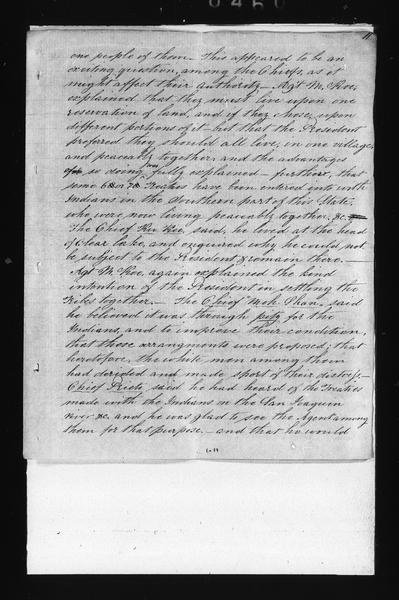 11
one people of them — This appeared to be an
exciting question, among the Chiefs, as it
might affect their authority — Agt McKee,
explained that they must live upon one
reservation of land, and if they chose, upon
different portions of it — but that the President
preferred they should all live, in one village,
and peaceably together, and the advantages
of so doing, fully explained — further, that
some 6 or 7 Treaties have been entered into with
Indians in the Southern part of this State,
who were now living peaceably together. &c.
The Chief said, he lived at the head
of Clear Lake, and enquired why he could not
be subject to the President & remain there. —
Agt McKee, again explained the kind
intention of the President in settling the
tribes together. — The Chief said
he believed it was through pity for the
Indians, and to improve their condition,
that these arrangments were proposed; that
heretofore, the white men among them
had derided and made sport of their distress. —
Chief Prieto, said he had heard of the Treaties
made with the Indians on the San Joaquin
River &c. and he was glad to see the Agent among
them for that purpose — and that he would